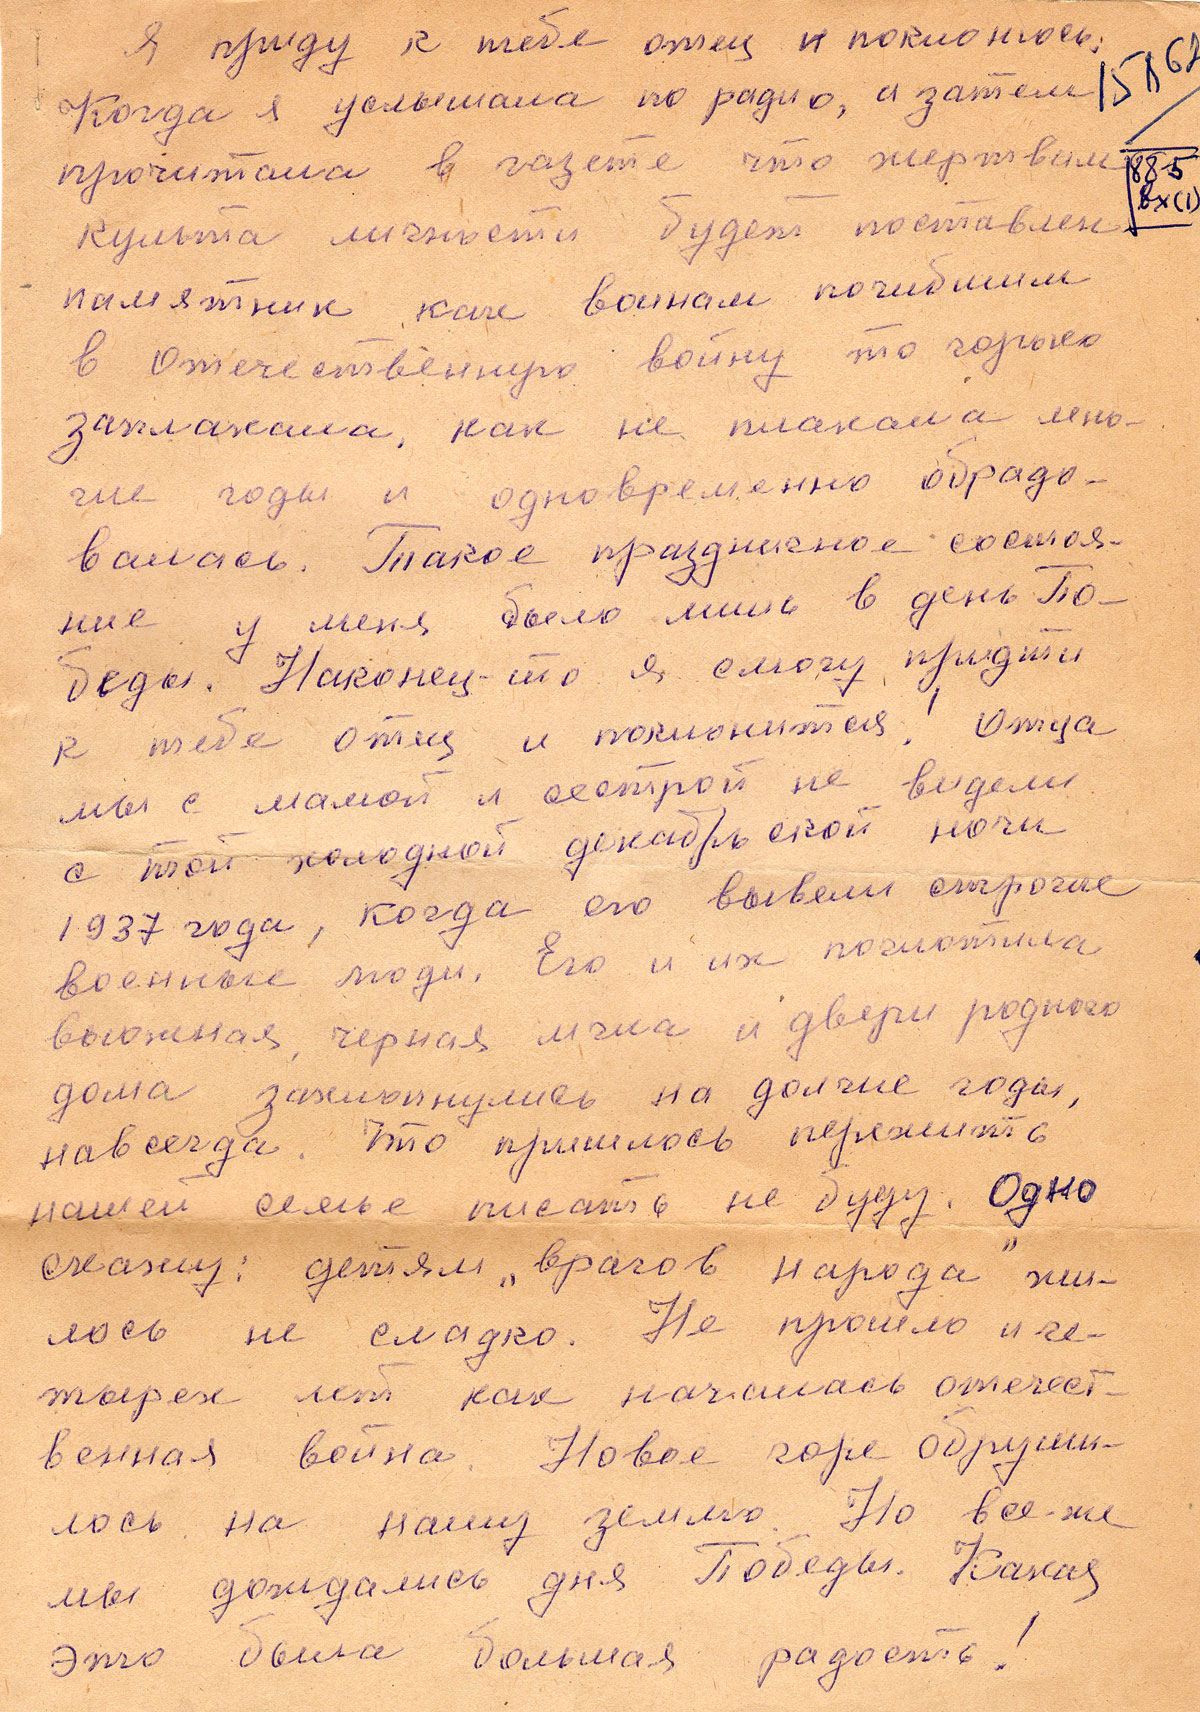 Я приду к тебе отец и поклонюсь.
Когда я услышала по радио, а затем
прочитала в газете что жертвам
885
вх(1)
культа личности будет поставлен
памятник как воинам погибшим
в отечественную войну то горько
заплакала, как не плакала мно-
гие годы и одновременно обрадо-
валась. Такое праздничное состоя-
ние у меня было лишь в день По-
беды. Наконец-то я смогу придти
к тебе отец и поклонится! Отца
мы с мамой и сестрой не видели
с той холодной декабрьской ночи
1937 года, когда его вывели строгие
военные люди. Его и их поглотила
вьюжная, черная мгла и двери родного
дома захлопнулись на долгие годы,
навсегда. Что пришлось пережить
нашей семье писать не буду. Одно
скажу: детям „врагов народа" жи-
лось не сладко. Не прошло и че-
тырех лет как началась отечест-
венная война. Новое горе обруши-
лось на нашу землю. Но все-же
мы дождались дня Победы. Какая
это была большая радость!